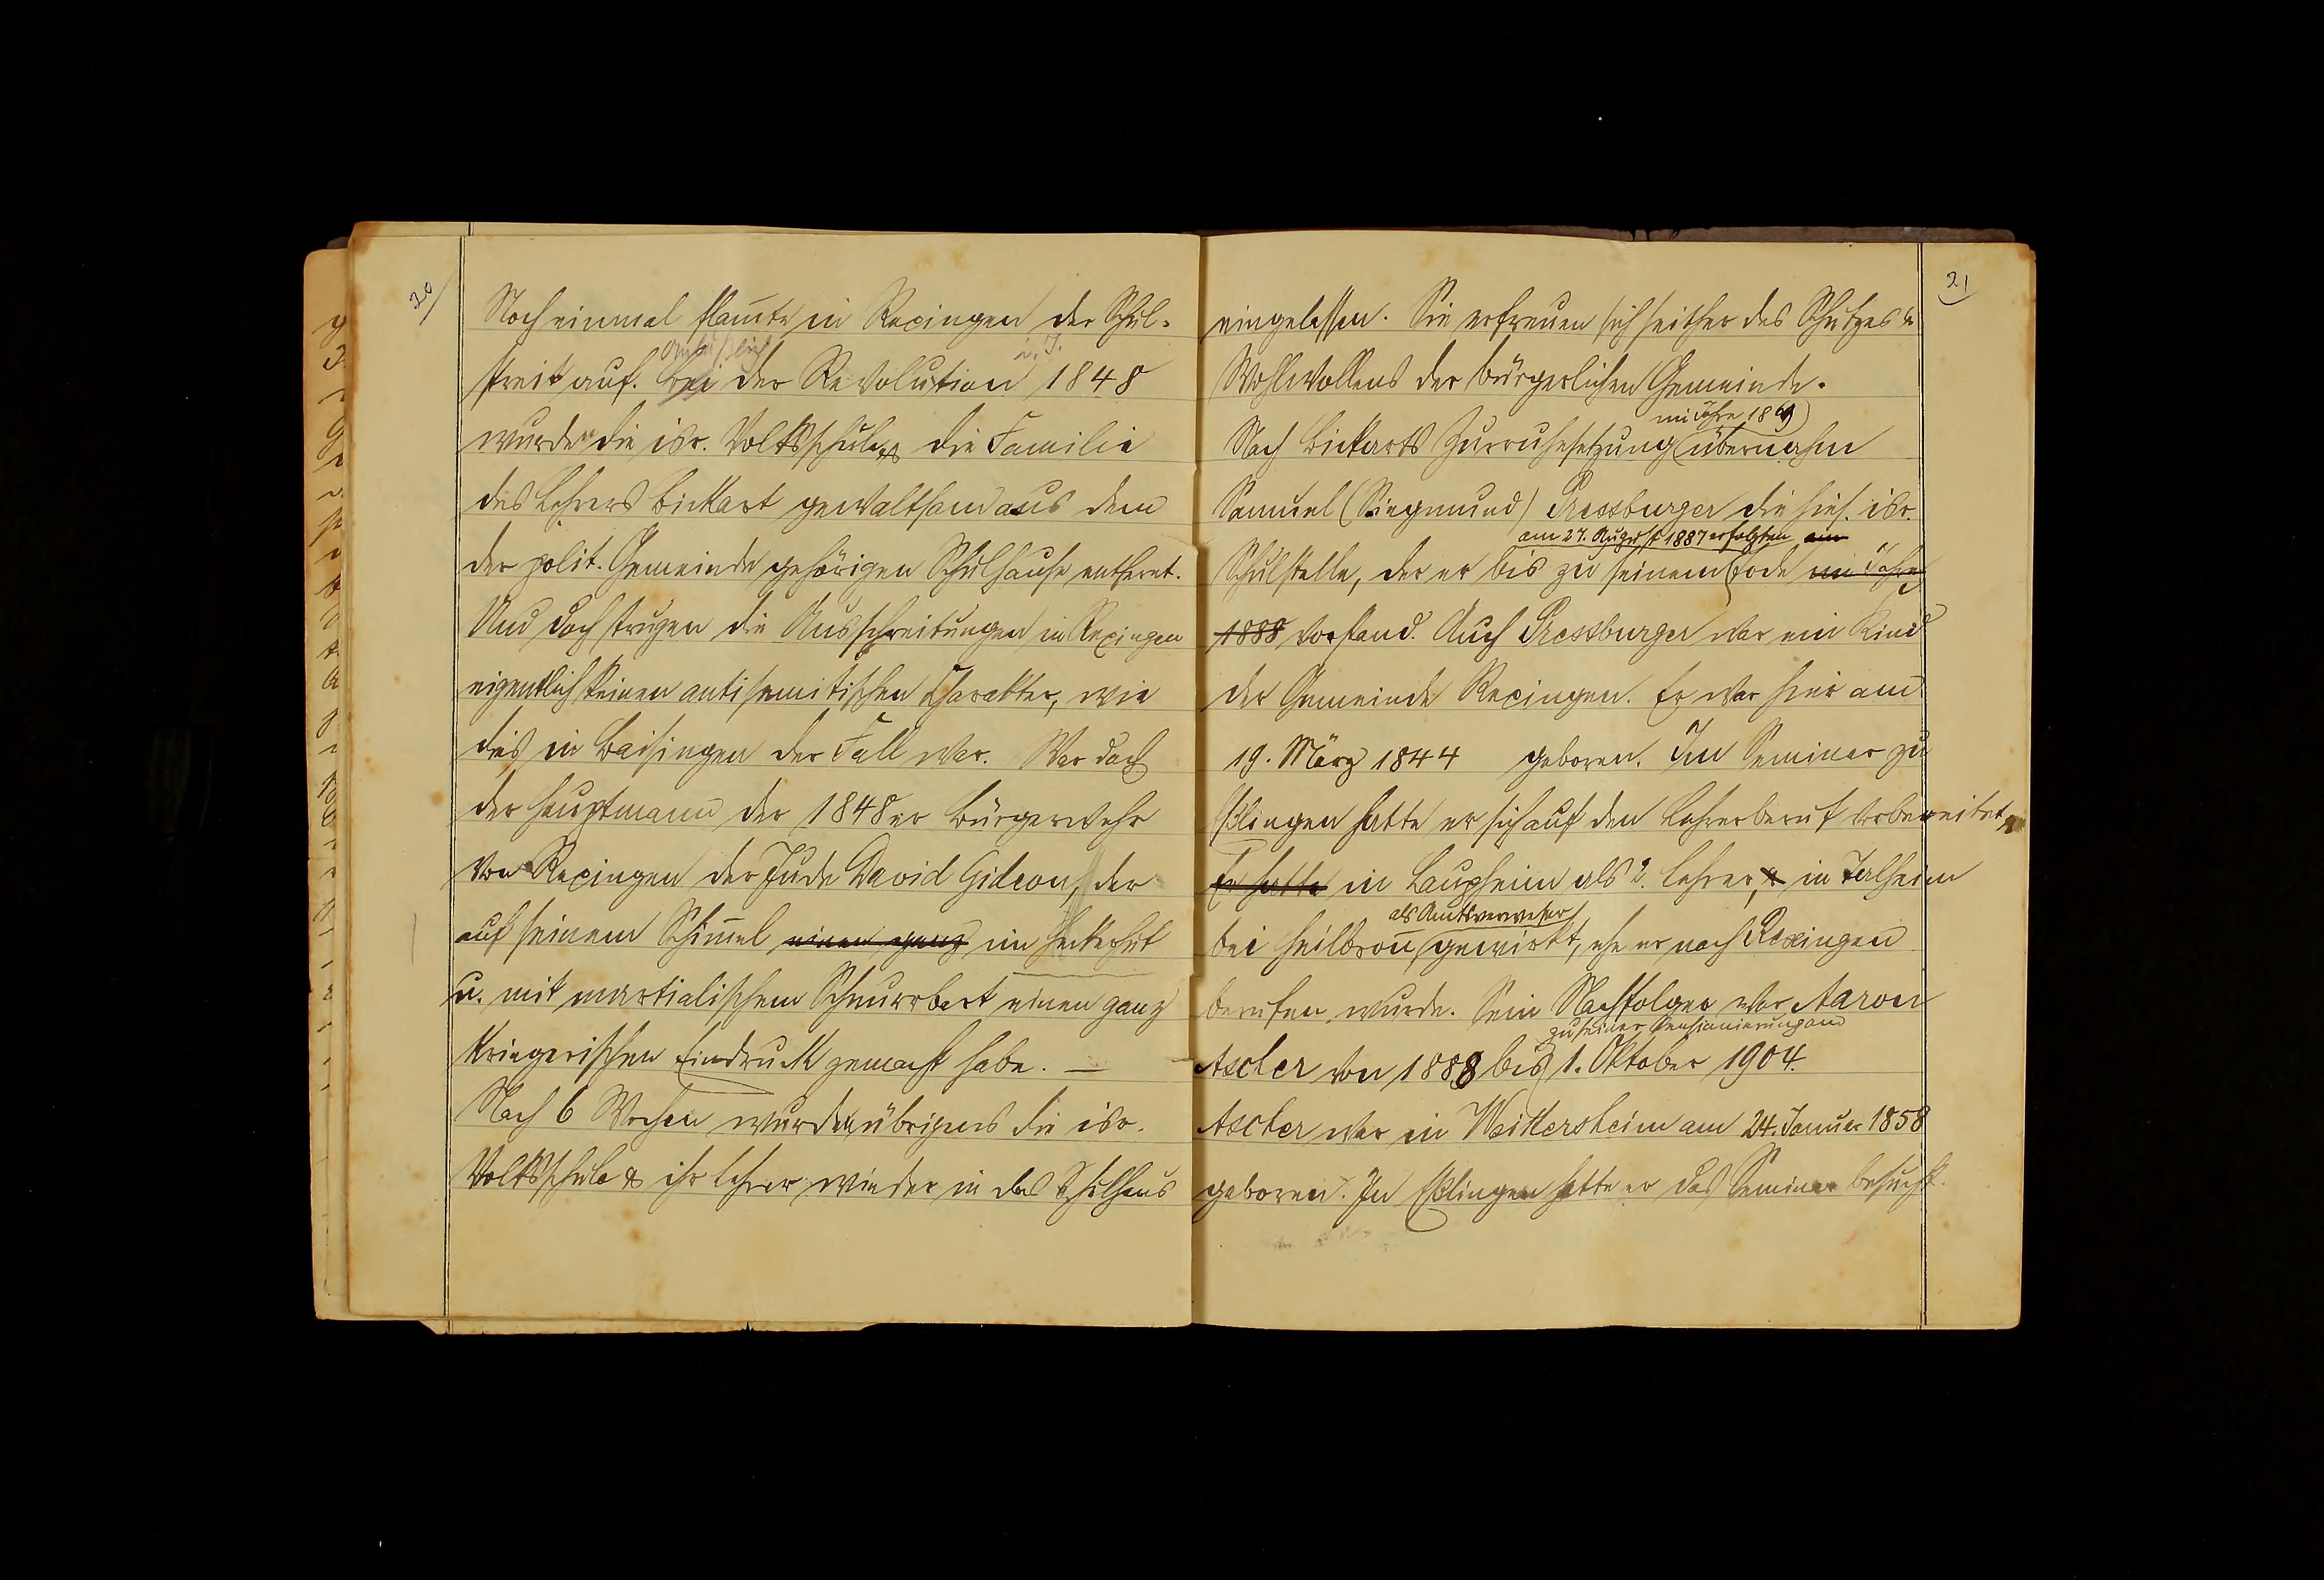 20
Noch einmal flam̄te in Rexingen der Schul-
anläßlich i. J.
streit auf. Bei der Revolution 1848
wurden die isr. Volksschule & die Familie
des Lehrers Bickart gewaltsam aus dem
der polit. Gemeinde gehörigen Schulhause entfernt.
Und doch trugen die Ausschreitungen in Rexingen
eigentlich keinen antisemitischen Charakter, wie
dies in Baisingen der Fall war. War doch
der Hauptmann der 1848er Bürgerwehr
von Rexingen der Jude David Gideon, der
auf seinem Schim̄el einen ganz im Heckerhut
u. mit martialischem Schnurrbart einen ganz
kriegerischen Eindruck gemacht habe. —
Nach 6 Wochen wurden übrigens die isr.
Volksschule & ihr Lehrer wieder in das Schulhaus
21
eingelassen. Sie erfreuen sich seither des Schutzes &
Wohlwollens der bürgerlichen Gemeinde.
im Jahre 1869
Nach Bickarts Zurruhesetzung übernahm
Samuel (Siegmund) Pressburger die hies. isr.
am 27. August 1887 erfolgten am
Schulstelle, der er bis zu seinem Tode im Jahre
1888 vorstand. Auch Pressburger war ein Kind
der Gemeinde Rexingen. Er war hier am
19. März 1844 geboren. Im Seminar zu
Eßlingen hatte er sich auf den Lehrerberuf vorbereitet,
Er hatte in Laupheim als 2. Lehrer, & in Talheim
als Amtsverweser
bei Heilbron̄ gewirkt, ehe er nach Rexingen
berufen wurde. Sein Nachfolger war Aaron
zu seiner Pensionierung am
Ascher von 1888 bis 1. Oktober 1904.
Ascher war in Weikersheim am 24. Januar 1858
geboren. In Eßlingen hatte er das Seminar besucht.